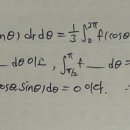 sinθ) dr dθ = 1/3 ∫₀^2π f(cosθ
___ dθ 이고, ∫_π/2 f ___ dθ =
cosθ sinθ) dθ = 0 이다. ∴